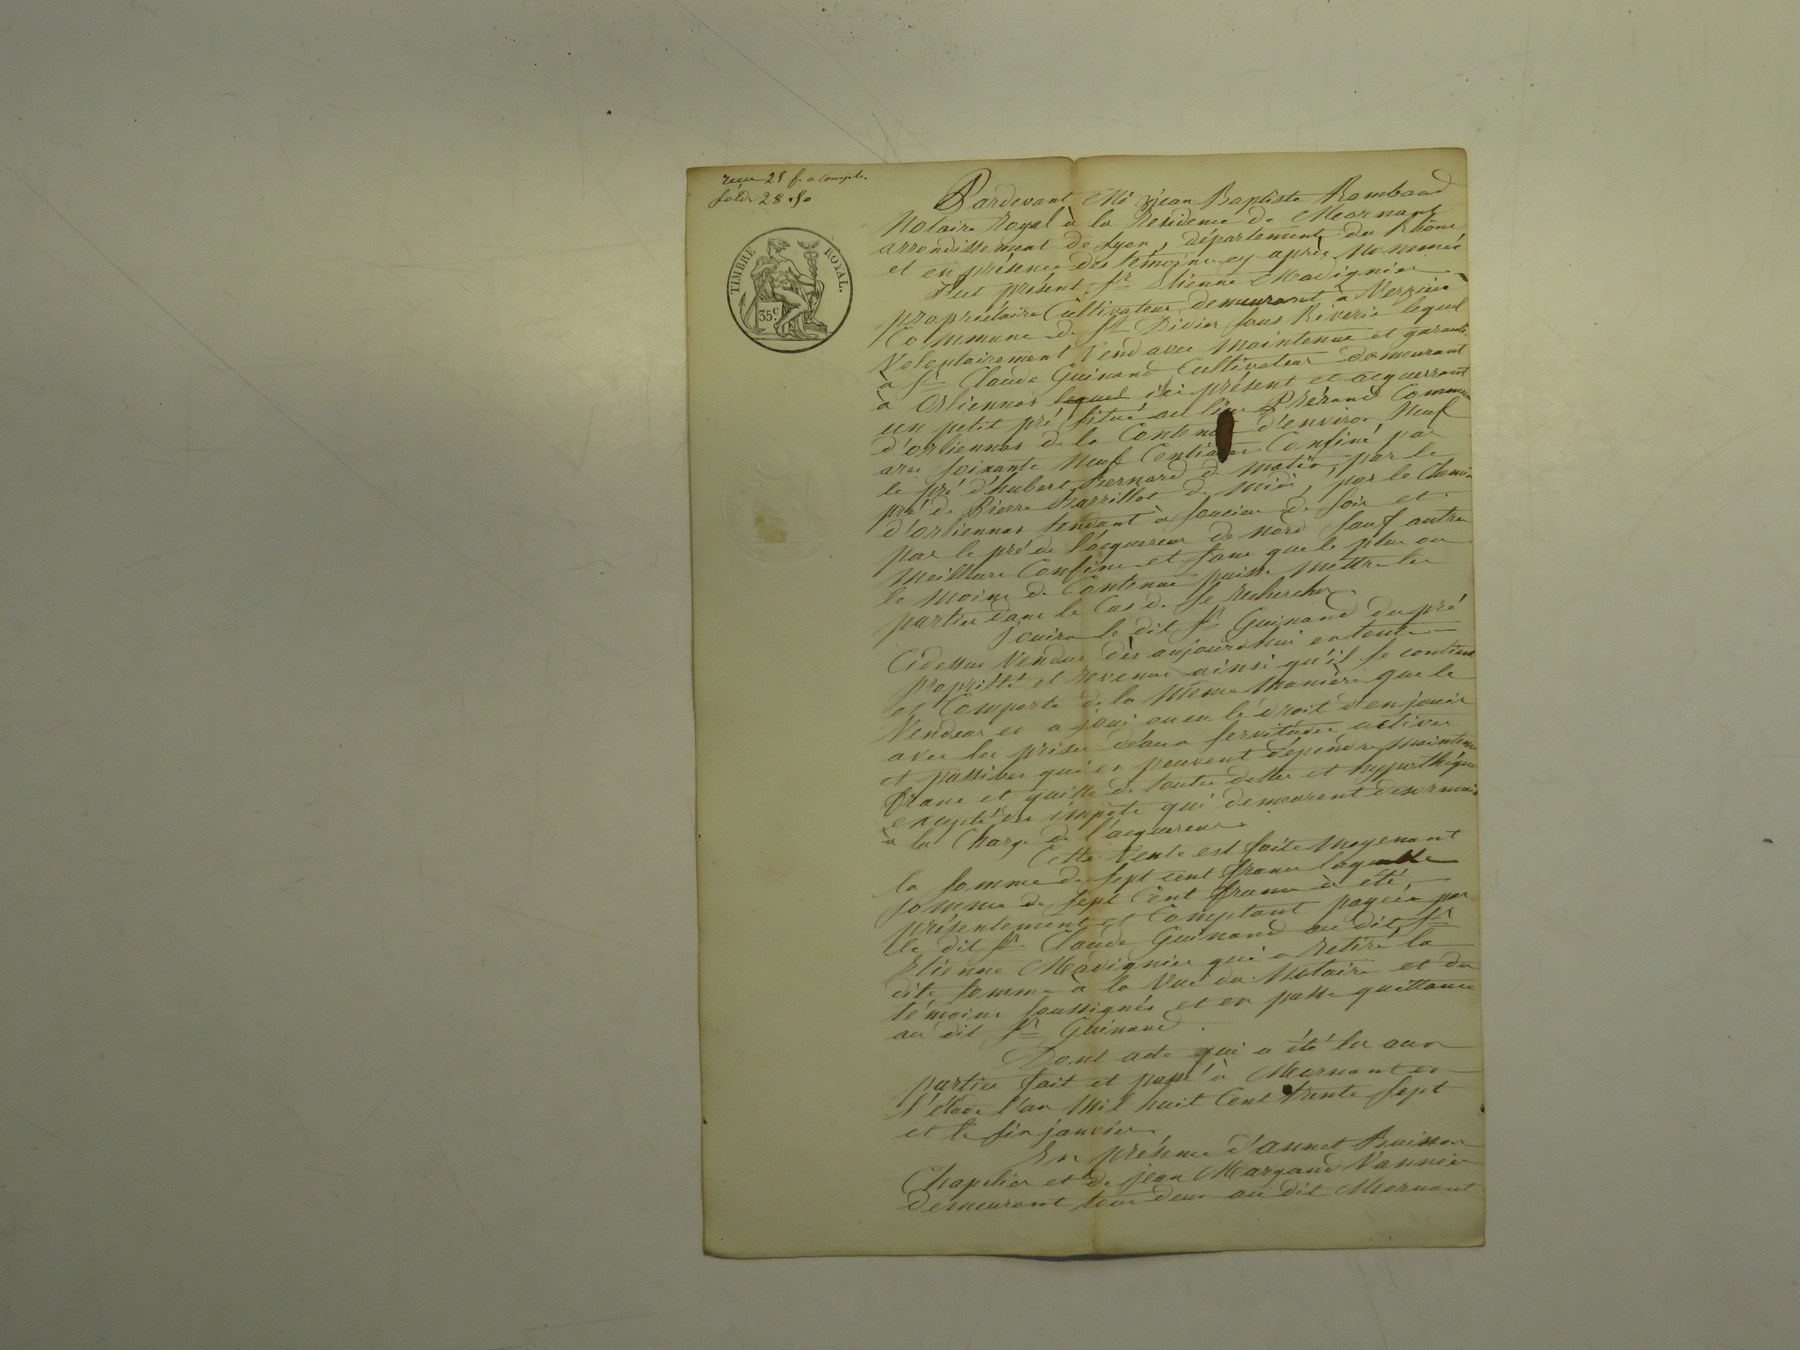 recu 28 f. a compte.
solde 28.50
TIMBRE ROYAL.
35 c
Pardevant Me jean Baptiste Rambaud
Notaire Royal à la Résidence de Mornant
arrondissement de Lyon, département du Rhône
et en présence des témoins cy après nommés
fut présent Sr Etienne Madignier
propriétaire Cultivateur demeurant à
Commune de St Didier sous Riverie lequel
Volontairement Vend avec maintenue et garantie
à Sr Claude Guinand Cultivateur demeurant
à Orliennas lequel ici présent et acquerrant
un petit pré situé au lieu Commune
d'orliennas de la Contenue d'environ Neuf
ares soixante neuf Centiares Confiné par
le pré d'hubert Bernard de matin, par le
pré de Pierre Barrillot de midi, par le Chemin
d'orliennas tendant à soucieu de soir et
par le pré de l'acquereur de nord sauf autre
meilleurs Confins et sans que le plus ou
le moins de Contenue puisse mettre les
parties dans le Cas de se rechercher.
jouira le dit Sr Guinand du pré
Cidessus Vendue dès aujourd'hui en toute
propriété et revenus ainsi qu'il se contient
et Comporte de la même manière que le
Vendeur en a joui ou eu le droit d'en jouir
avec les prises d'eaux servitudes actives
et passives qui en peuvent dépendre maintenu
franc et quitte de toutes dettes et hypothèques
excepté des impots qui demeurent desormais
à la Charge de l'acquereur.
Cette Vente est faite moyenant
la somme de sept cent francs laquelle
somme de sept Cent francs à été
présentement et Comptant payée par
le dit Sr Claude Guinand au dit Sr
Etienne Madignier qui a retiré la
dite somme à la Vue du Notaire et des
témoins soussignés et en passe quittance
au dit Sr Guinand.
Dont acte qui a été lu aux
parties fait et passé à Mornant en
l'étude l'an Mil huit Cent trente sept
et le six janvier.
En présence d'annet Buisson
Chapelier et de jean Margand Vannier
demeurant tous deux au dit Mornant